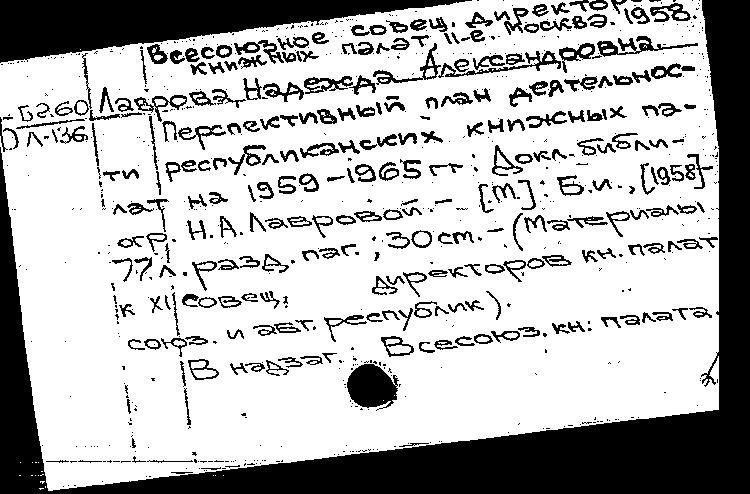 Всесоюзное совещ. директоров
книжных палат, 11-е. Москва. 1958.
Б2.60 Лаврова, Надежда Александровна.
Л-136 Перспективный план деятельнос-
ти республиканских книжных па-
лат на 1959-1965 гг: Докл. библи-
огр. Н.А. Лавровой. - [М.]: Б.и., [1958]-
77 л. разд. паг.; 30 см. - (Материалы
к XI совещ. директоров кн. палат
союз. и авт. республик).
В надзаг.: Всесоюз. кн. палата.